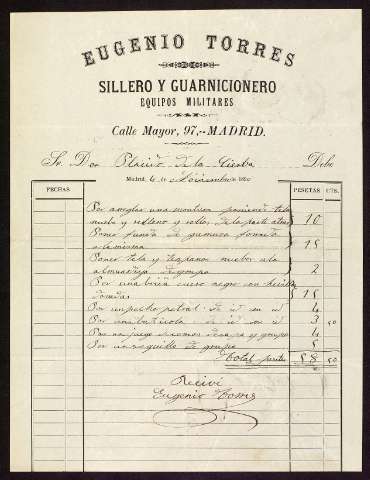 EUGENIO TORRES
SILLERO Y GUARNICIONERO
EQUIPOS MILITARES
Calle Mayor, 97,-MADRID.
Sr. Don Placido de la Debe
Madrid, 6 de Noviembre
FECHAS. PESETAS CTS.
Por arreglar una montura poniendo tela
nueba y relleno y de la parte 10
Poner funda de gamuza
a la misma 15
Poner tela y nuebos a la
de grupa 2
Por una brida cuero negro con
doradas 15
Por un pecho petral de id con id 4
Por una baticola de id con id 3 50
Por un juego y grupa 4
Por un de grupa 5
Total pesetas 58 50
Recivi
Eugenio Torres